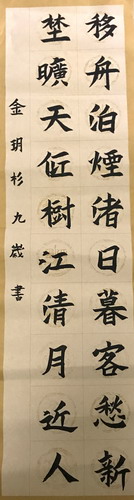 移舟泊煙渚日暮客愁新
埜曠天低樹江清月近人
金玥杉九歲書